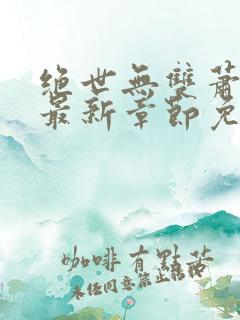 絕世無雙蕭
最新章節免
咖啡有點苦
未經同意禁止轉載